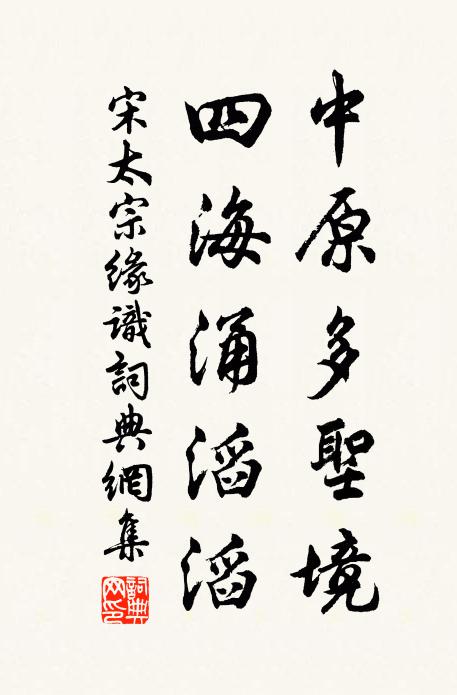 中原多聖境
四海涌滔滔
宋太宗緣識詞典網集
詞典網印